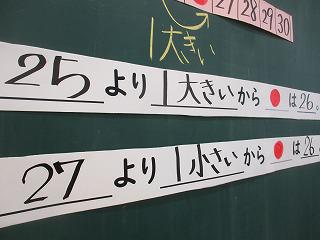 27 28 29 30
1大きい
25より1大きいから●は26。
27より1小さいから●は26。